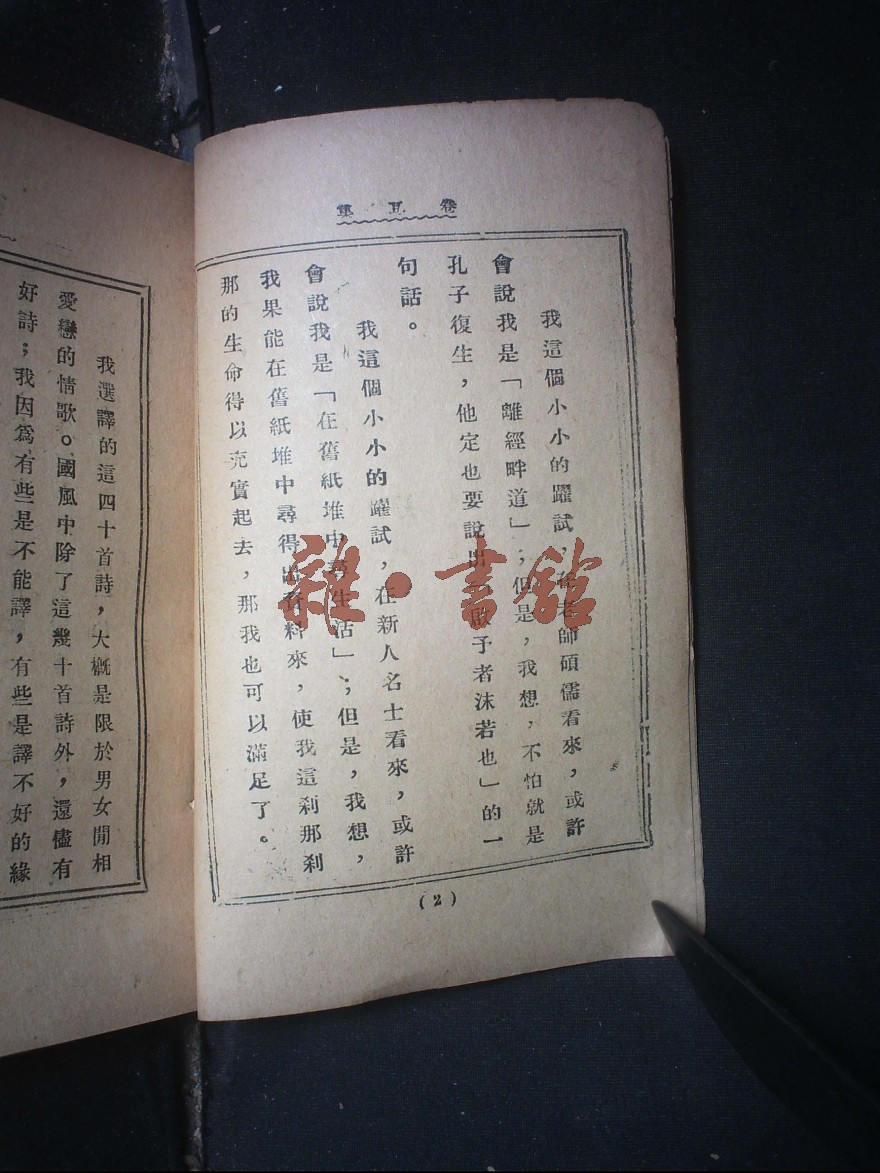 卷耳集
我這個小小的躍試，在老師碩儒看來，或許
會說我是「離經畔道」；但是，我想，不怕就是
孔子復生，他定也要說出「啟予者沫若也」的一
句話。
我這個小小的躍試，在新人名士看來，或許
會說我是「在舊紙堆中尋生活」；但是，我想，
我果能在舊紙堆中尋得出資料來，使我這剎那剎
那的生命得以充實起去，那我也可以滿足了。
(2)
我選譯的這四十首詩，大概是限於男女間相
愛戀的情歌。國風中除了這幾十首詩外，還儘有
好詩；我因爲有些是不能譯，有些是譯不好的緣
雜·書館